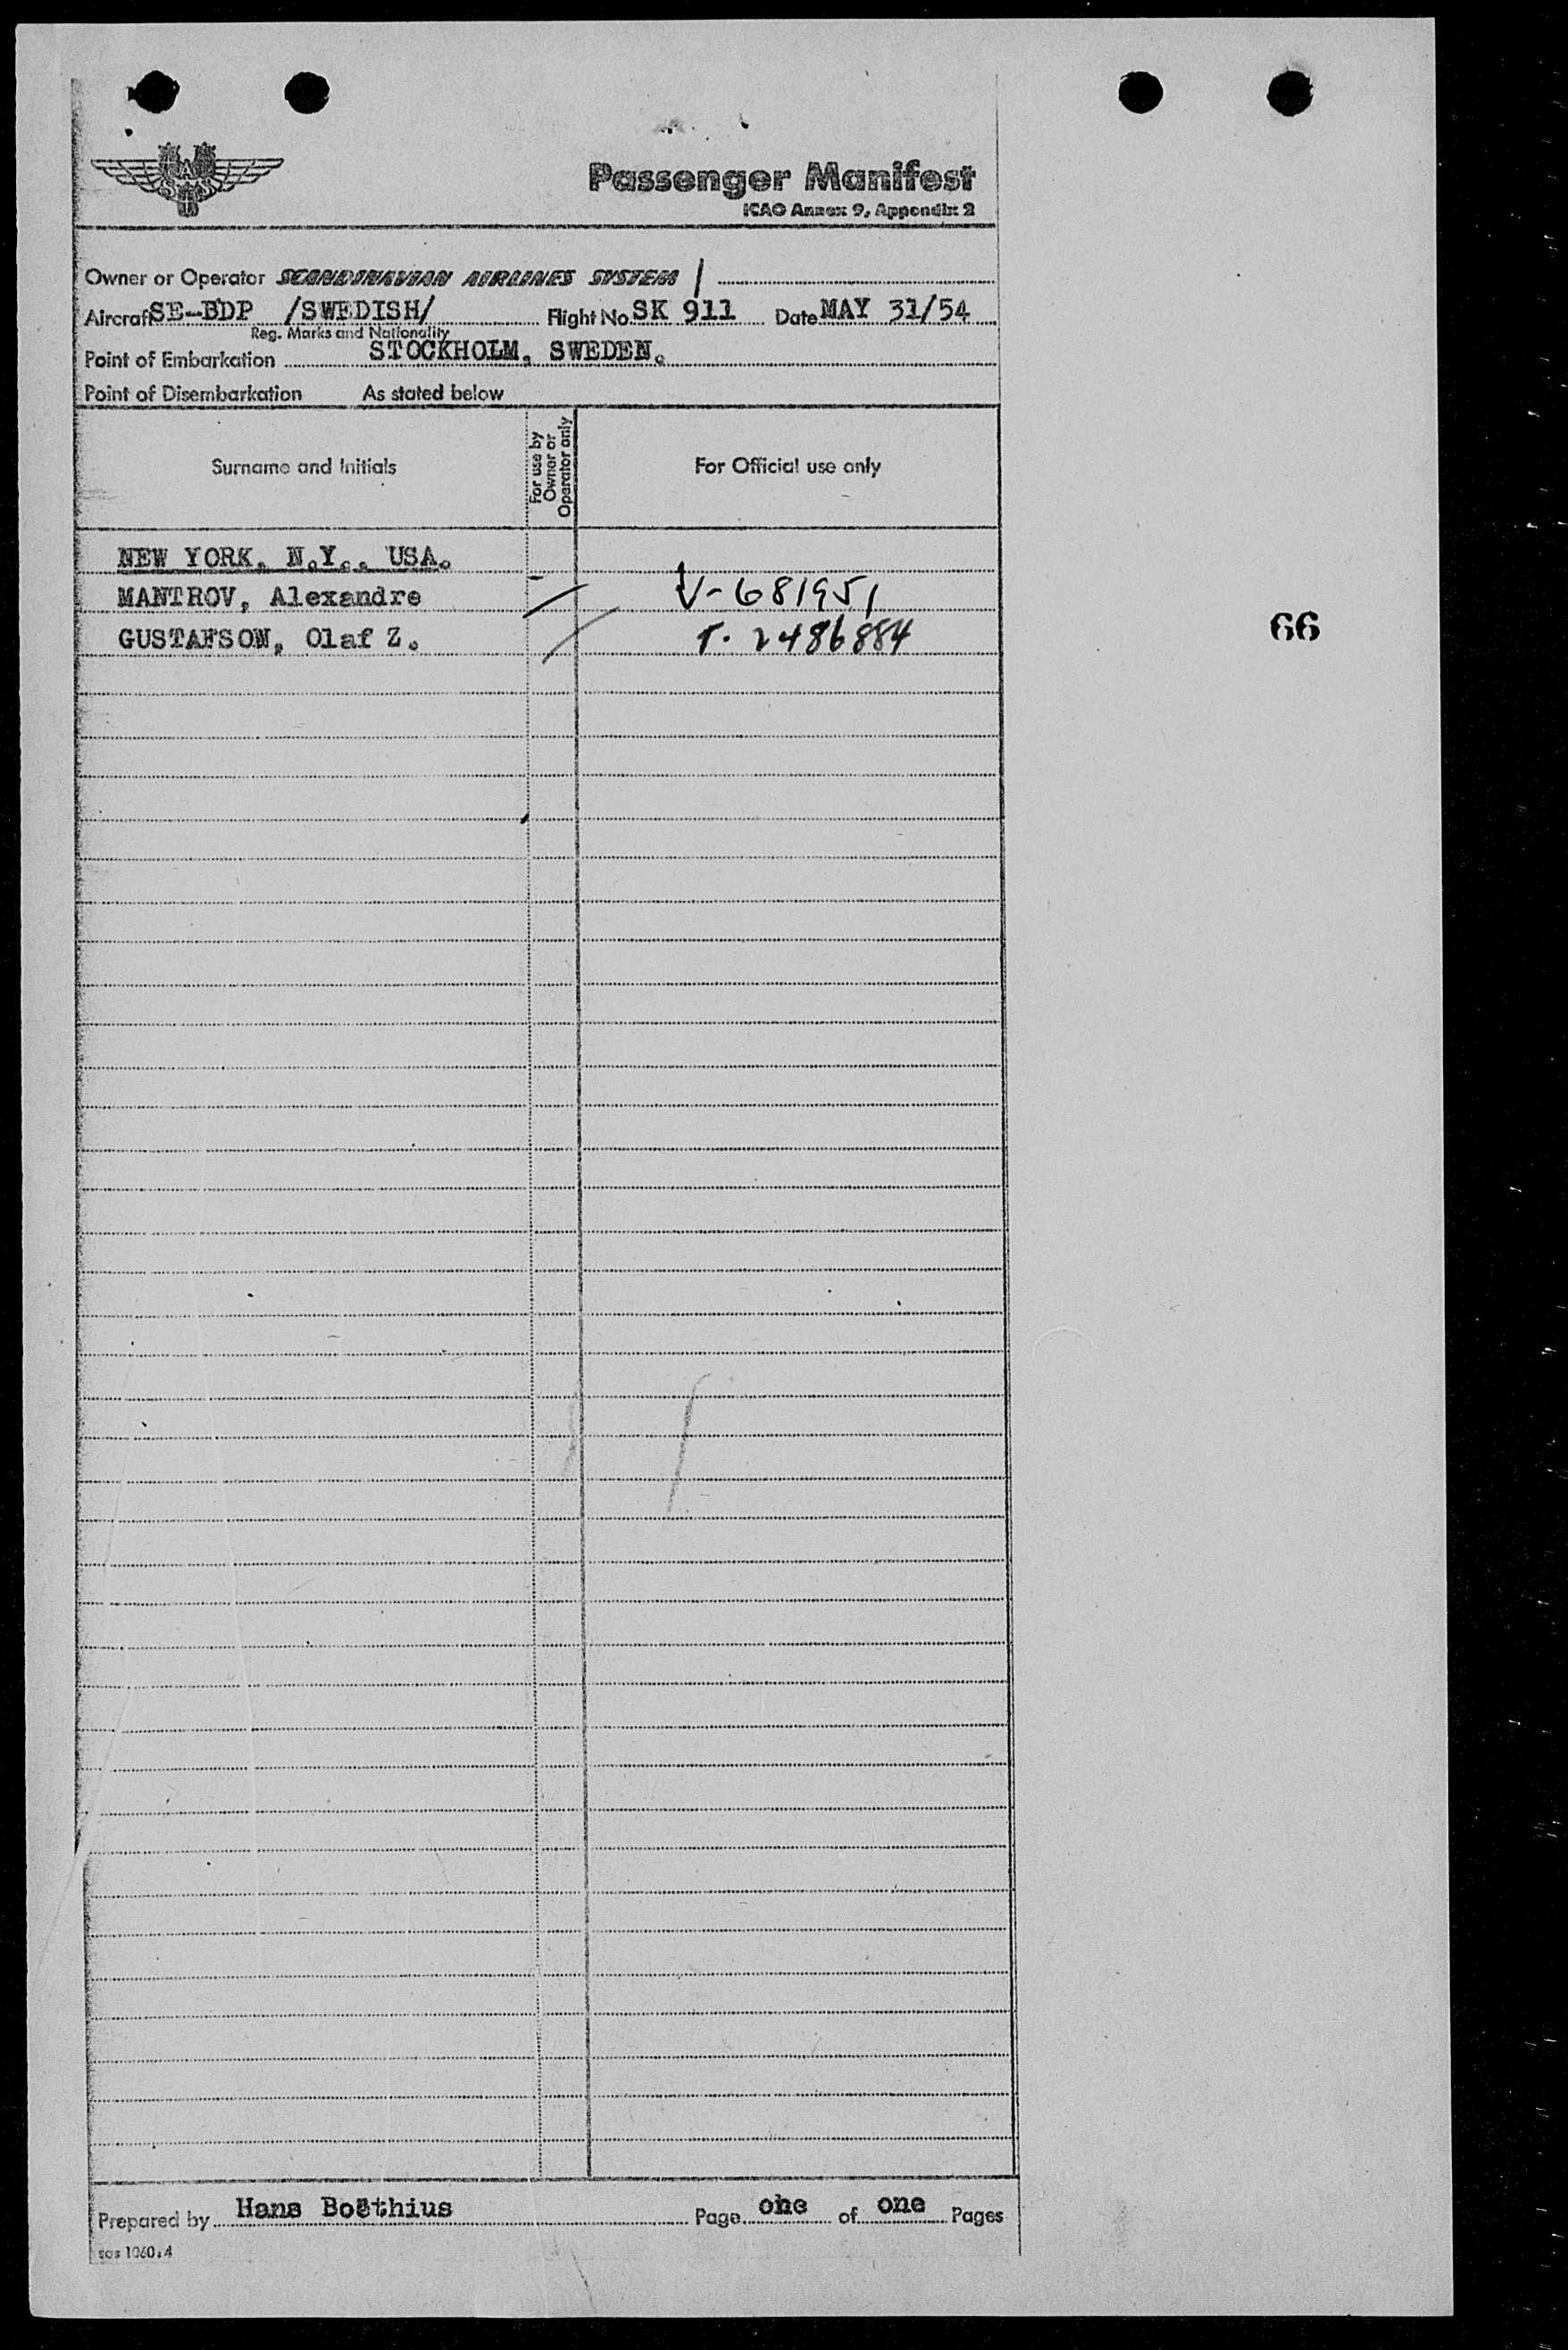 SAS
Passenger Manifest
ICAO Annex 9, Appendix 2
Owner or Operator SCANDINAVIAN AIRLINES SYSTEM /
Aircraft SE-BDP /SWEDISH/ Flight No SK 911 Date MAY 31/54
Reg. Marks and Nationality
Point of Embarkation STOCKHOLM, SWEDEN.
Point of Disembarkation As stated below
Surname and Initials For use by Owner or Operator only For Official use only
NEW YORK, N.Y., USA.
MANTROV, Alexandre V-681951
GUSTAFSON, Olaf Z. T. 2486884
66
Prepared by Hans Boëthius Page one of one Pages
sas 1060:4